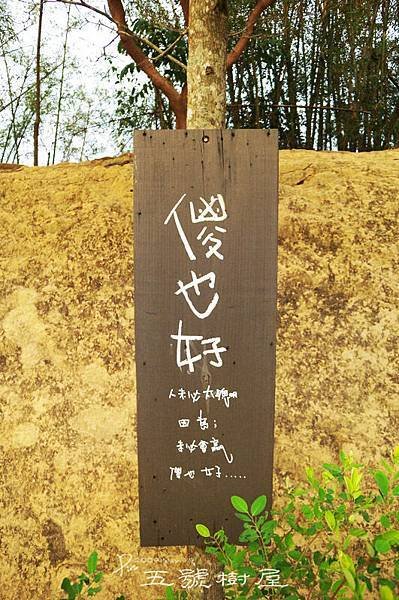 傻也好
人未必太聰明
因為；
未必會贏
傻也好.....
五號樹屋